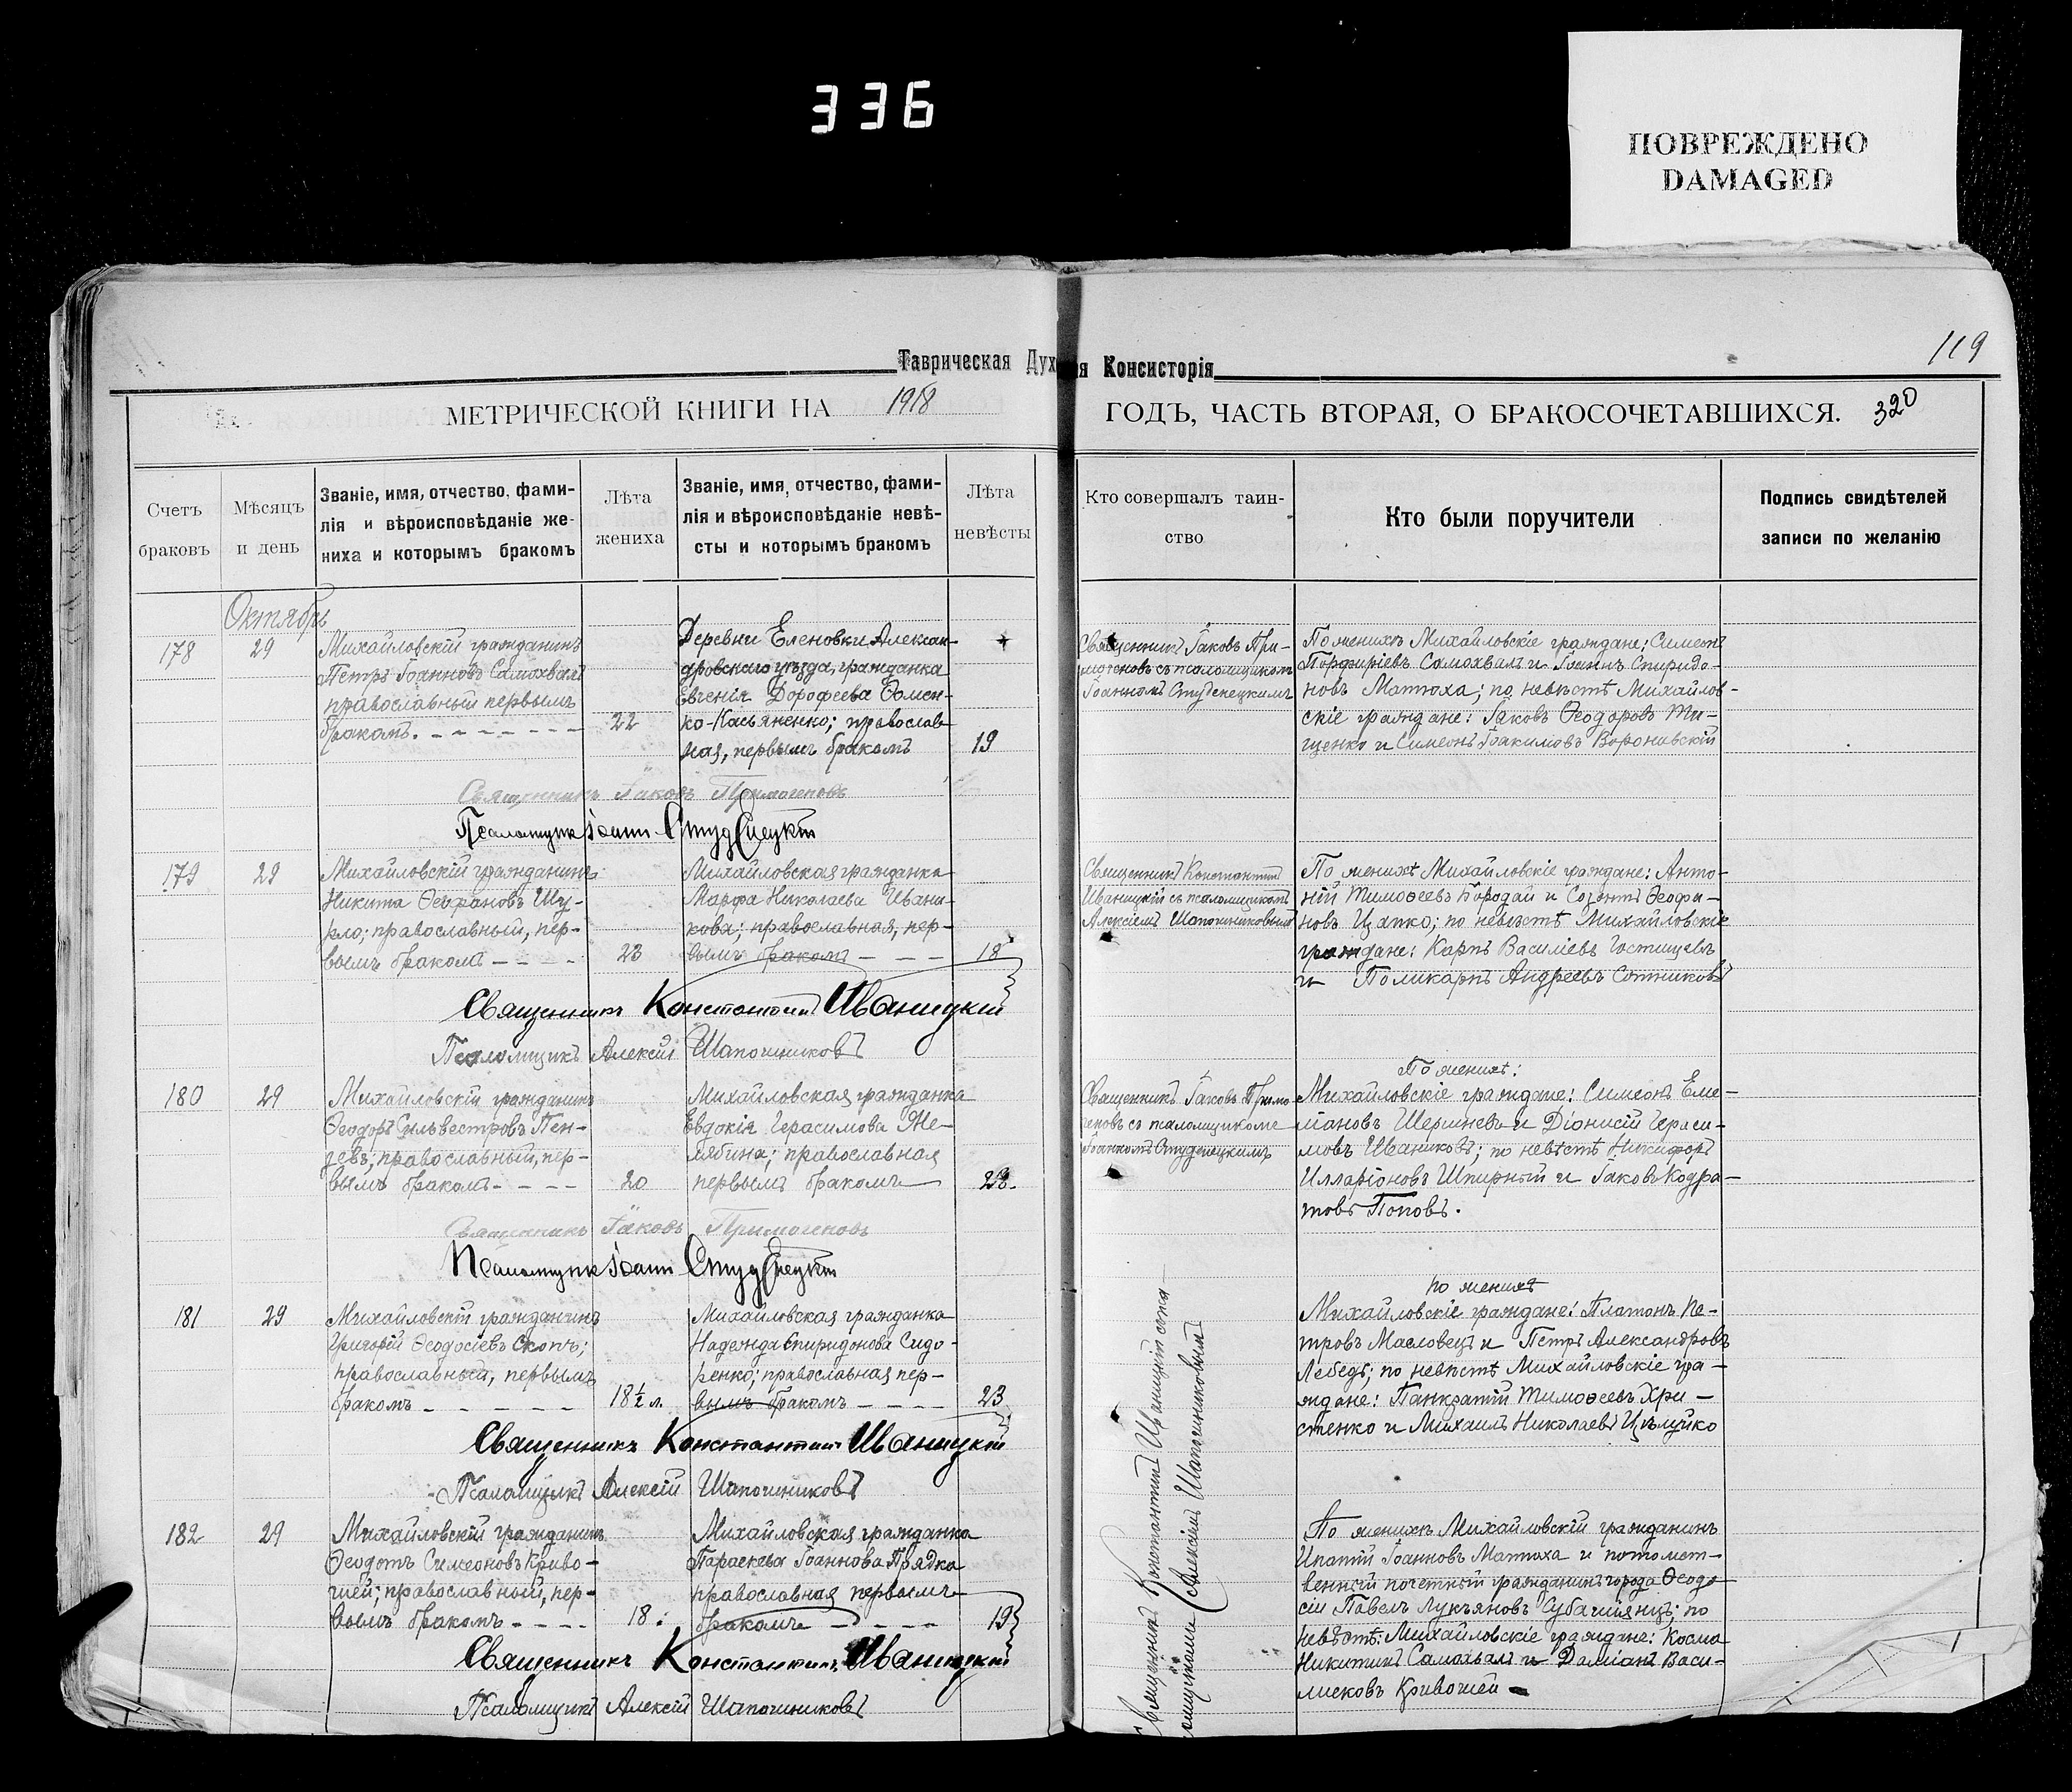 336
ПОВРЕЖДЕНО
DAMAGED
119
Таврическая Дух
я Консисторія
МЕТРИЧЕСКОЙ КНИГИ НА 1918
ГОДЪ, ЧАСТЬ ВТОРАЯ, О БРАКОСОЧЕТАВШИХСЯ. 320
Счетъ
браковъ
Мѣсяцъ
и день
Званіе, имя, отчество, фами-
лія и вѣроисповѣданіе же-
ниха и которымъ бракомъ
Лѣта
жениха
Званіе, имя, отчество, фами-
лія и вѣроисповѣданіе невѣ-
сты и которымъ бракомъ
Лѣта
невѣсты
Кто совершалъ таин-
ство
Кто были поручители
Подпись свидѣтелей
записи по желанію
Октябрь
178
29
Михайловскій гражданинъ
Петръ Іоанновъ Самохвалъ
православный первымъ
бракомъ. - - - - - - -
22
Деревни Еленовки Алексан-
дровскаго уѣзда, гражданка
Евгенія Дорофеева Фомен-
ко-Касьяненко; православ-
ная, первымъ бракомъ
19
Священникъ Іаковъ При-
могеновъ съ псаломщикомъ
Іоанномъ Студенецкимъ
По женихѣ Михайловскіе граждане: Симеонъ
Порфиріевъ Самохвалъ и Іоаннъ Спиридо-
новъ Матюха; по невѣстѣ Михайлов-
скіе граждане: Іаковъ Ѳеодоровъ Ти-
щенко и Симеонъ Іоакимовъ Вороновскій
Священникъ Іаковъ Примогеновъ
Псаломщик Іоанн Студенецкій
179
29
Михайловскій гражданинъ
Никита Ѳеофановъ Шу-
рло; православный, пер-
вымъ бракомъ - - - -
23
Михайловская гражданка
Марфа Николаева Ивани-
кова; православная, пер-
вымъ бракомъ - - -
18
Священникъ Константинъ
Иваницкій съ псаломщикомъ
Алексіемъ Шапошниковымъ
По женихѣ Михайловскіе граждане: Анто-
ній Тимоѳеевъ Бородай и Созонтъ Ѳеофа-
новъ Цапко; по невѣстѣ Михайловскіе
граждане: Карпъ Василіевъ Гостищевъ
и Поликарпъ Андреевъ Сотниковъ
Священникъ Константинъ Иваницкій
Псаломщикъ Алексій Шапошниковъ
180
29
Михайловскій гражданинъ
Ѳеодоръ Сильвестровъ Пен-
зевъ; православный, пер-
вымъ бракомъ - - - -
20
Михайловская гражданка
Евдокія Герасимова Же-
лябина; православная
первымъ бракомъ
Священникъ Іаковъ Примо-
геновъ съ псаломщикомъ
Іоанномъ Студенецкимъ
По женихѣ:
Михайловскіе граждане: Симеонъ Еме-
ліановъ Шершневъ и Діонисій Гераси-
мовъ Иваниковъ; по невѣстѣ Никифоръ
Илларіоновъ Шпирный и Іаковъ Кодра-
товъ Поповъ.
Священникъ Іаковъ Примогеновъ
Псаломщик Іоанн Студенецкій
181
29
Михайловскій гражданинъ
Григорій Ѳеодосіевъ Скопъ;
православный, первымъ
бракомъ - - - - - -
18½ л.
Михайловская гражданка
Надежда Спиридонова Сидо-
ренко; православная пер-
вымъ бракомъ - - - -
23
по женихѣ
Михайловскіе граждане: Платонъ Пе-
тровъ Масловецъ и Петръ Александровъ
Лебедь; по невѣстѣ Михайловскіе гра-
ждане: Панкратій Тимоѳеевъ Хри-
стенко и Михаилъ Николаевъ
Священникъ Константинъ Иваницкій
Псаломщикъ Алексій Шапошниковъ
182
29
Михайловскій гражданинъ
Ѳеодотъ Симеоновъ Криво-
шей; православный, пер-
вымъ бракомъ - - - -
18
Михайловская гражданка
Параскева Іоаннова Прядка
православная первымъ
бракомъ - - - -
19
Священникъ Константинъ Иваницкій
Алексіемъ Шапошниковымъ
По женихѣ Михайловскій гражданинъ
Ипатій Іоанновъ Матюха и потомст-
венный почетный гражданинъ города Ѳеодо-
сіи Павелъ Лукьяновъ; по
невѣстѣ: Михайловскіе граждане: Косма
Никитинъ Самохвалъ и Даміанъ Васи-
лиековъ Кривошей
Священникъ Константинъ Иваницкій
Псаломщикъ Алексій Шапошниковъ